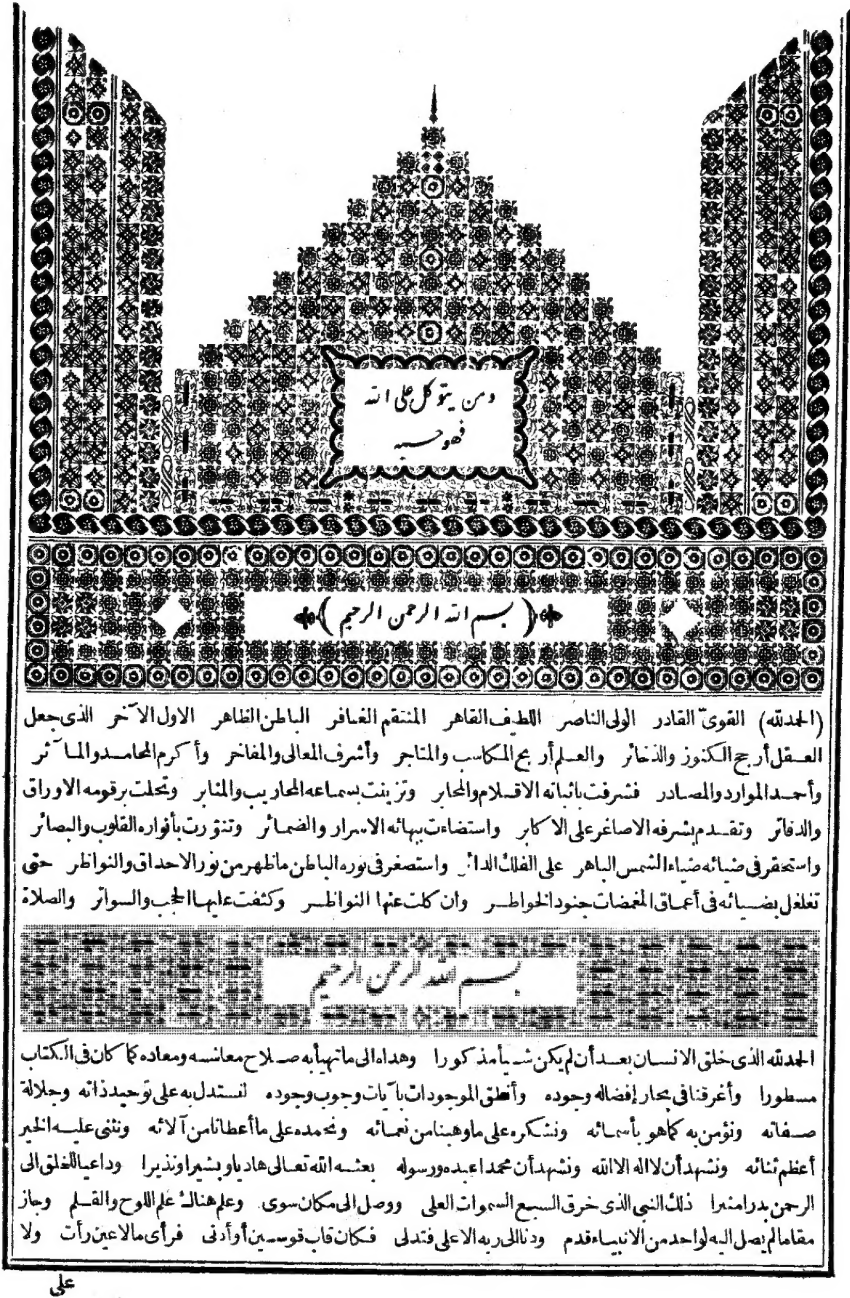 ومن يتوكل على الله
فهو حسبه
(بسم الله الرحمن الرحيم)
(الحمد لله) القوىّ القادر الولى الناصر اللطيف القاهر المنتقم الغافر الباطن الظاهر الاول الآخر الذى جعل
العقل أرجح الكنوز والذخائر والعلم أربح المكاسب والمتاجر وأشرف المعالى والمفاخر وأكرم المحامد والمآثر
وأحمد الموارد والمصادر فشرفت باثباته الاقلام والمحابر وتزينت بسماعه المحاريب والمنابر وتحلت برقومه الاوراق
والدفاتر وتقدم بشرفه الاصاغر على الاكابر واستضاءت ببهائه الاسرار والضمائر وتنوّرت بأنواره القلوب والبصائر
واستحقر فى ضيائه ضياء الشمس الباهر على الفلك الدائر واستصغر فى نوره الباطن ما ظهر من نور الاحداق والنواظر حتى
تغلغل بضيائه فى أعماق المغمضات جنود الخواطر وان كلت عنها النواظر وكثفت عليها الحجب والسواتر والصلاة
بسم الله الرحمن الرحيم
الحمد لله الذى خلق الانسان بعد أن لم يكن شيأ مذكورا وهداه الى ما تهيأ به صلاح معاشه ومعاده كما كان فى الكتاب
مسطورا وأغرقنا فى بحار إفضاله وجوده وأنطق الموجودات بآيات وجوب وجوده لنستدل به على توحيد ذاته وجلالة
صفاته ونؤمن به كما هو بأسمائه ونشكره على ما وهبنا من نعمائه ونحمده على ما أعطانا من آلائه ونثنى عليه الخير
أعظم ثنائه ونشهد أن لا اله الا الله ونشهد أن محمدا عبده ورسوله بعثه الله تعالى هاديا وبشيرا ونذيرا وداعيا للخلق الى
الرحمن بدرا منيرا ذلك النبى الذى خرق السبع السموات العلى ووصل الى مكان سوى وعلم هنالك علم اللوح والقلم وجاز
مقاما لم يصل اليه لواحد من الانبياء قدم ودنا الى ربه الاعلى فتدلى فكان قاب قوسين أو أدنى فرأى ما لا عين رأت ولا
على